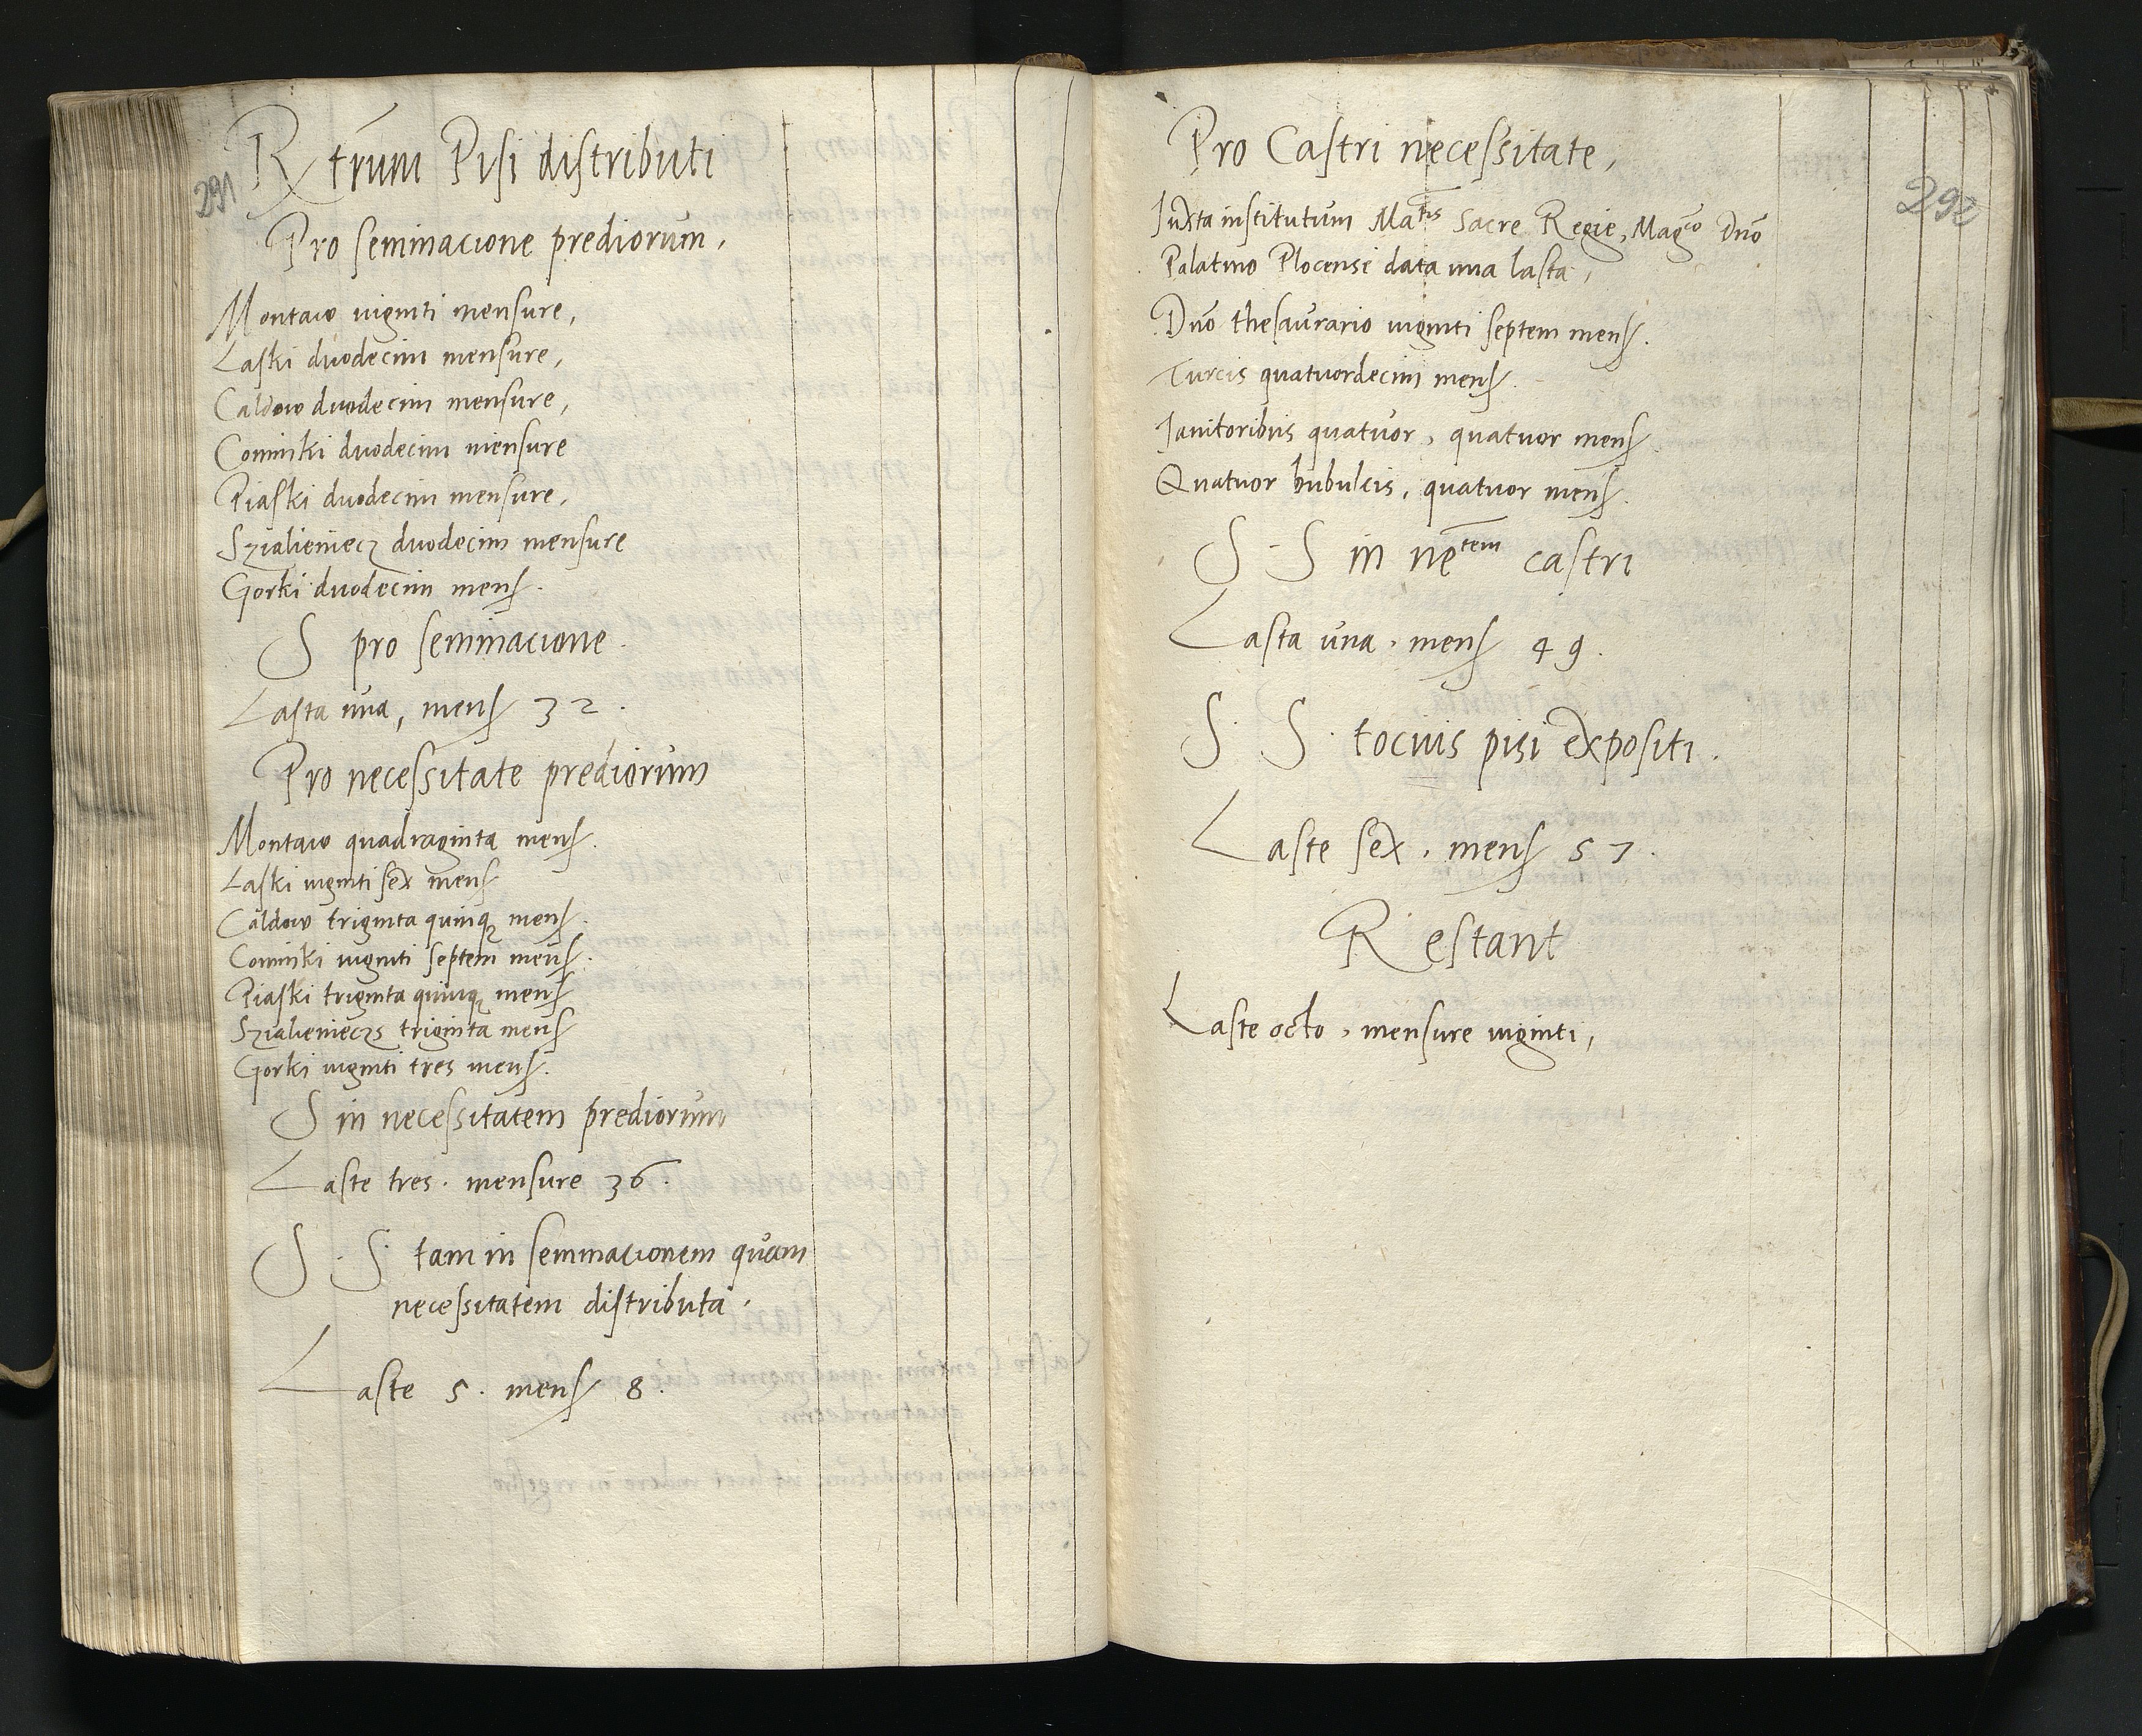 291
Rtrum Pisi distributi
Pro seminacione prediorum,
Montaw viginti mensure,
Laski duodecim mensure,
Caldow duodecim mensure,
Cominki duodecim mensure
Piaski duodecim mensure,
Szialieniecz duodecim mensure
Gorki duodecim mens.
S pro seminacione.
Lasta una, mens 32.
Pro necessitate prediorum
Montaw quadraginta mens.
Laski viginti sex mens
Caldow triginta quinq mens.
Cominki viginti septem mens.
Piaski triginta quinq mens
Szialienieczs triginta mens
Gorki viginti tres mens.
S in necessitatem prediorum
Laste tres. mensure 36.
S. S. tam in seminacionem quam
necessitatem distributa.
Laste 5. mens 8.
292
Pro Castri necessitate,
Juxta institutum Matis Sacre Regie, Magco Dno
Palatino Plocensi data una lasta,
Dno thesaurario viginti septem mens.
Turcis quatuordecim mens.
Janitoribus quatuor, quatuor mens.
Quatuor bubulcis, quatuor mens.
S - S in netem castri
Lasta una. mens 49.
S. S. tocius pisi expositi.
Laste sex. mens 57.
Restant
Laste octo, mensure viginti,